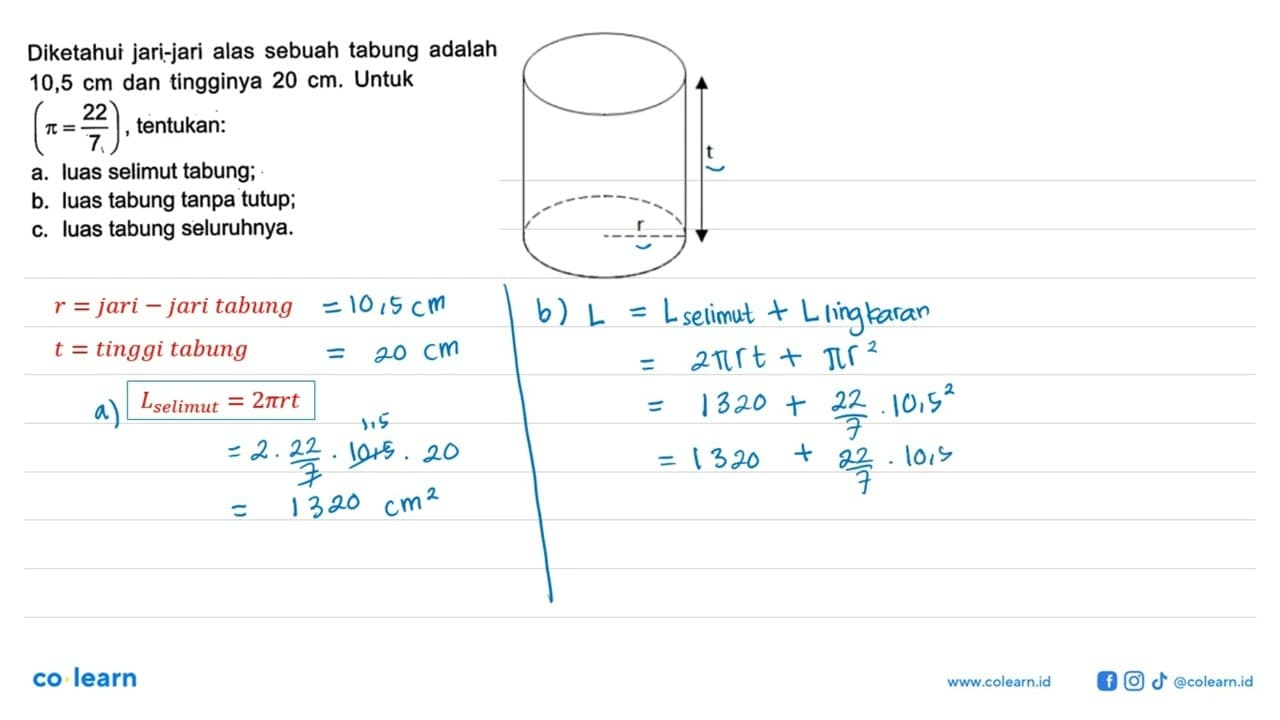 Diketahui jari-jari alas sebuah tabung adalah
10,5 cm dan tingginya 20 cm. Untuk
(π = 22/7), tentukan:
a. luas selimut tabung;
b. luas tabung tanpa tutup;
c. luas tabung seluruhnya.
t
r
r = jari − jari tabung = 10,5 cm
t = tinggi tabung = 20 cm
a) L selimut = 2πrt
1,5
= 2 . 22/7 . 10,5 . 20
= 1320 cm²
b) L = L selimut + L lingkaran
= 2πrt + πr²
= 1320 + 22/7 . 10,5²
= 1320 + 22/7 . 10,5
co learn
www.colearn.id
@colearn.id